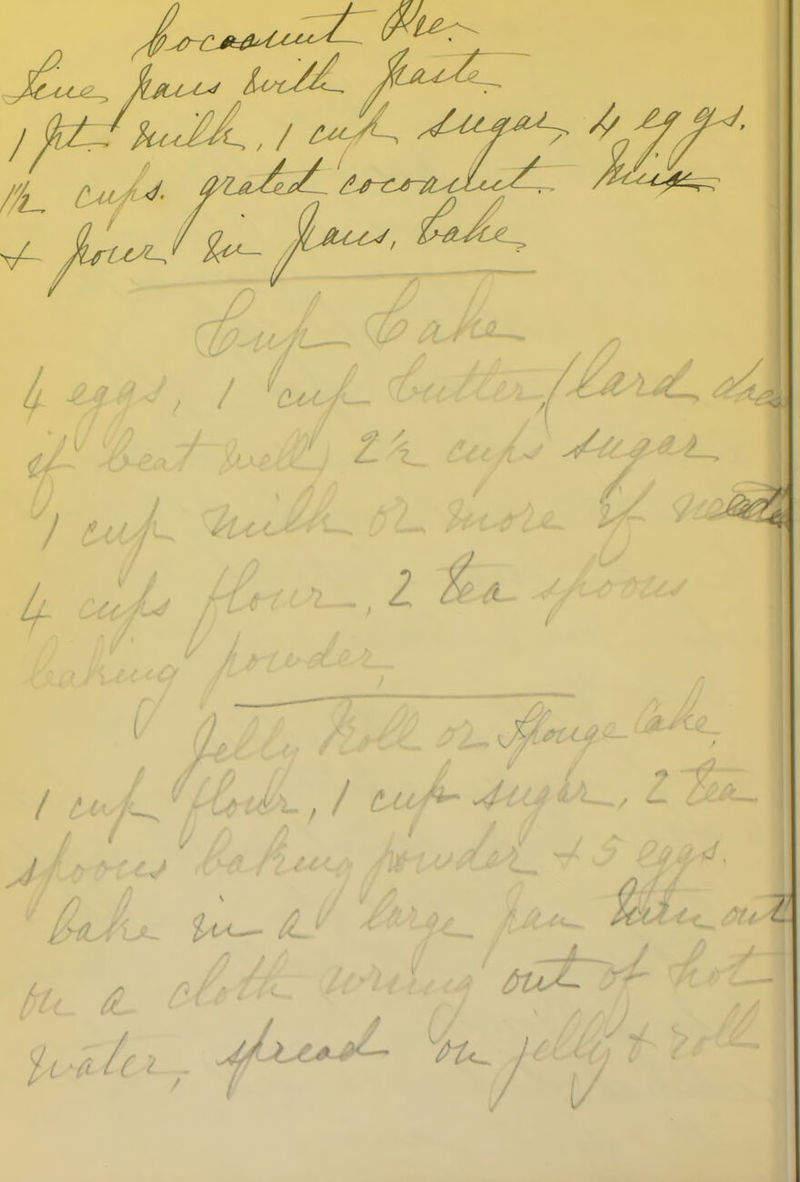 Cocoanut Pie.
Line pans with paste
1 pt milk, 1 cup sugar, 4 eggs.
1½ cups. grated cocoanut. Mix
& pour in pans, bake
Cup Cake
4 eggs, 1 cup butter, (lard does
if beat well) 2½ cups sugar
1 cup milk or more if needed
4 cups flour, 2 tea spoons
baking powder,
Jelly Roll or Sponge Cake.
1 cup flour, 1 cup sugar, 2 tea
spoons baking powder & 5 eggs.
bake in a large pan turn out
on a cloth wrung out of hot
water, spread on jelly & roll